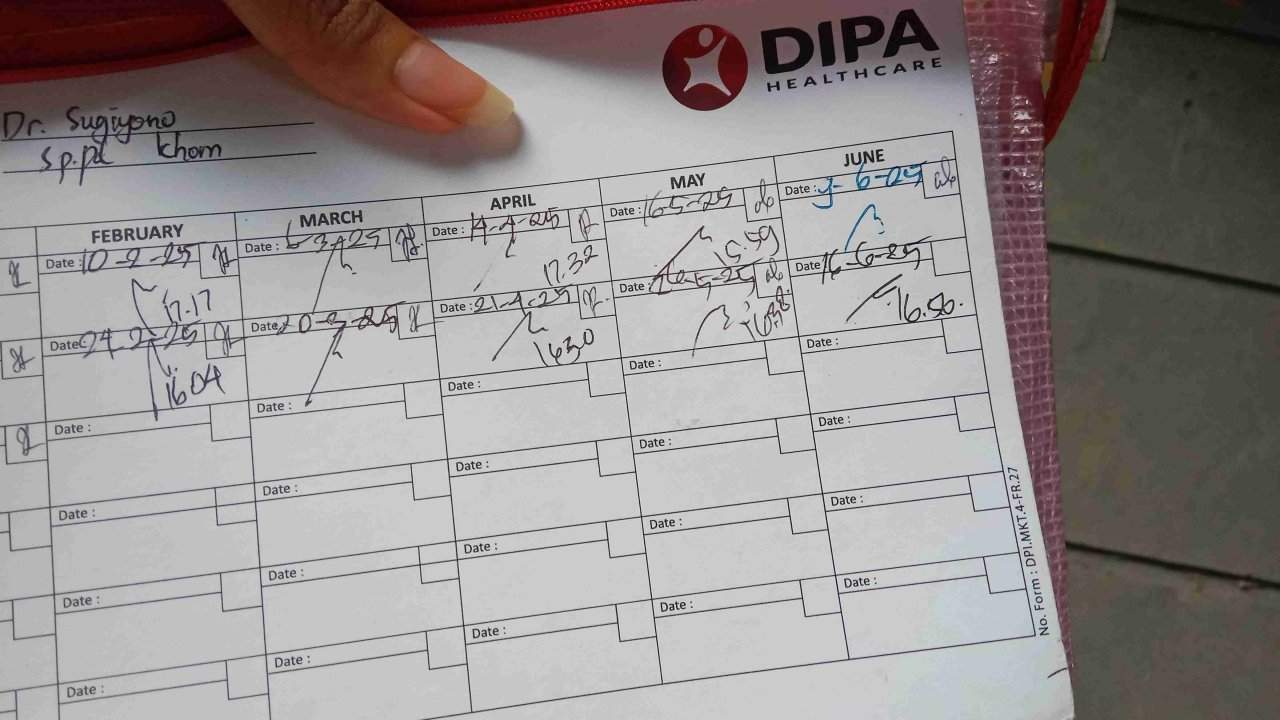 DIPA
HEALTHCARE
Dr. Sugiyono
Sp.pd Khom
FEBRUARY MARCH APRIL MAY JUNE
Date : 10-2-25 Date : 6-3-25 Date : 14-4-25 Date : 16-5-25 Date : 9-6-25
17.17 17.32 15.59
Date : 24-2-25 Date : 20-3-25 Date : 21-4-25 Date : Date : 16-6-25
16 04 1630 16.56.
Date : Date : Date : Date : Date :
Date : Date : Date : Date : Date :
Date : Date : Date : Date : Date :
Date : Date : Date : Date : Date :
No. Form : DPI.MKT.4-FR.27